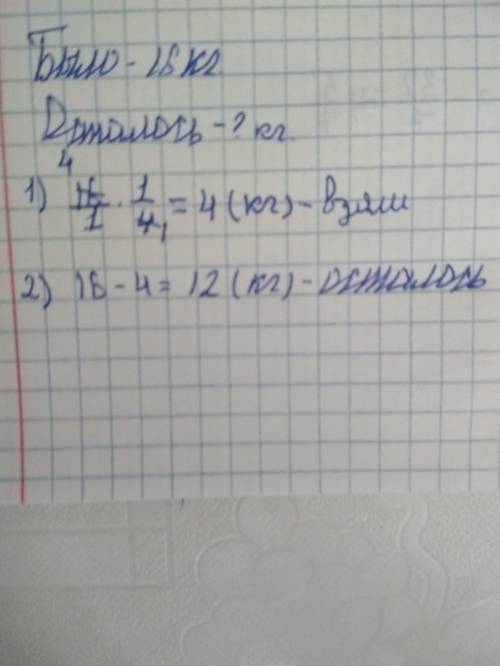 Было - 16 кг
Осталось - ? кг.
1) 16/1 · 1/4 = 4 (кг) - взяли
2) 16 - 4 = 12 (кг) - осталось